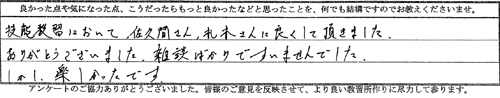 良かった点や気になった点、こうだったらもっと良かったなどと思ったことを、何でも結構ですのでお教えくださいませ。
技能教習において、佐久間さん、札木さんに良くして頂きました。
ありがとうございました。雑談ばかりですいませんでした。
しかし、楽しかったです。
アンケートのご協力ありがとうございました。皆様のご意見を反映させて、より良い教習所作りに尽力して参ります。